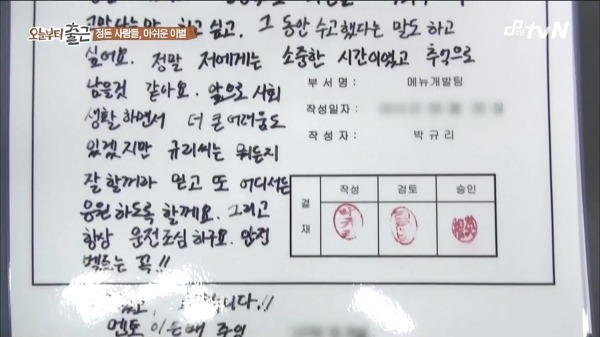 오늘부터 출근
정든 사람들, 아쉬운 이별
tvN
하고 싶고, 그 동안 수고했다는 말도 하고
싶어요. 정말 저에게는 소중한 시간이였고 추억으로
남을것 같아요. 앞으로 사회
생활 하면서 더 큰 어려움도
있겠지만 규리씨는 뭐든지
잘 할꺼라 믿고 또 어디서든
응원 하도록 할께요. 그리고
항상 운전조심 하구요. 안전
벨트는 꼭!!
부 서 명 : 메뉴개발팀
작성일자 :
작 성 자 : 박 규 리
결재 작성 검토 승인
멘토